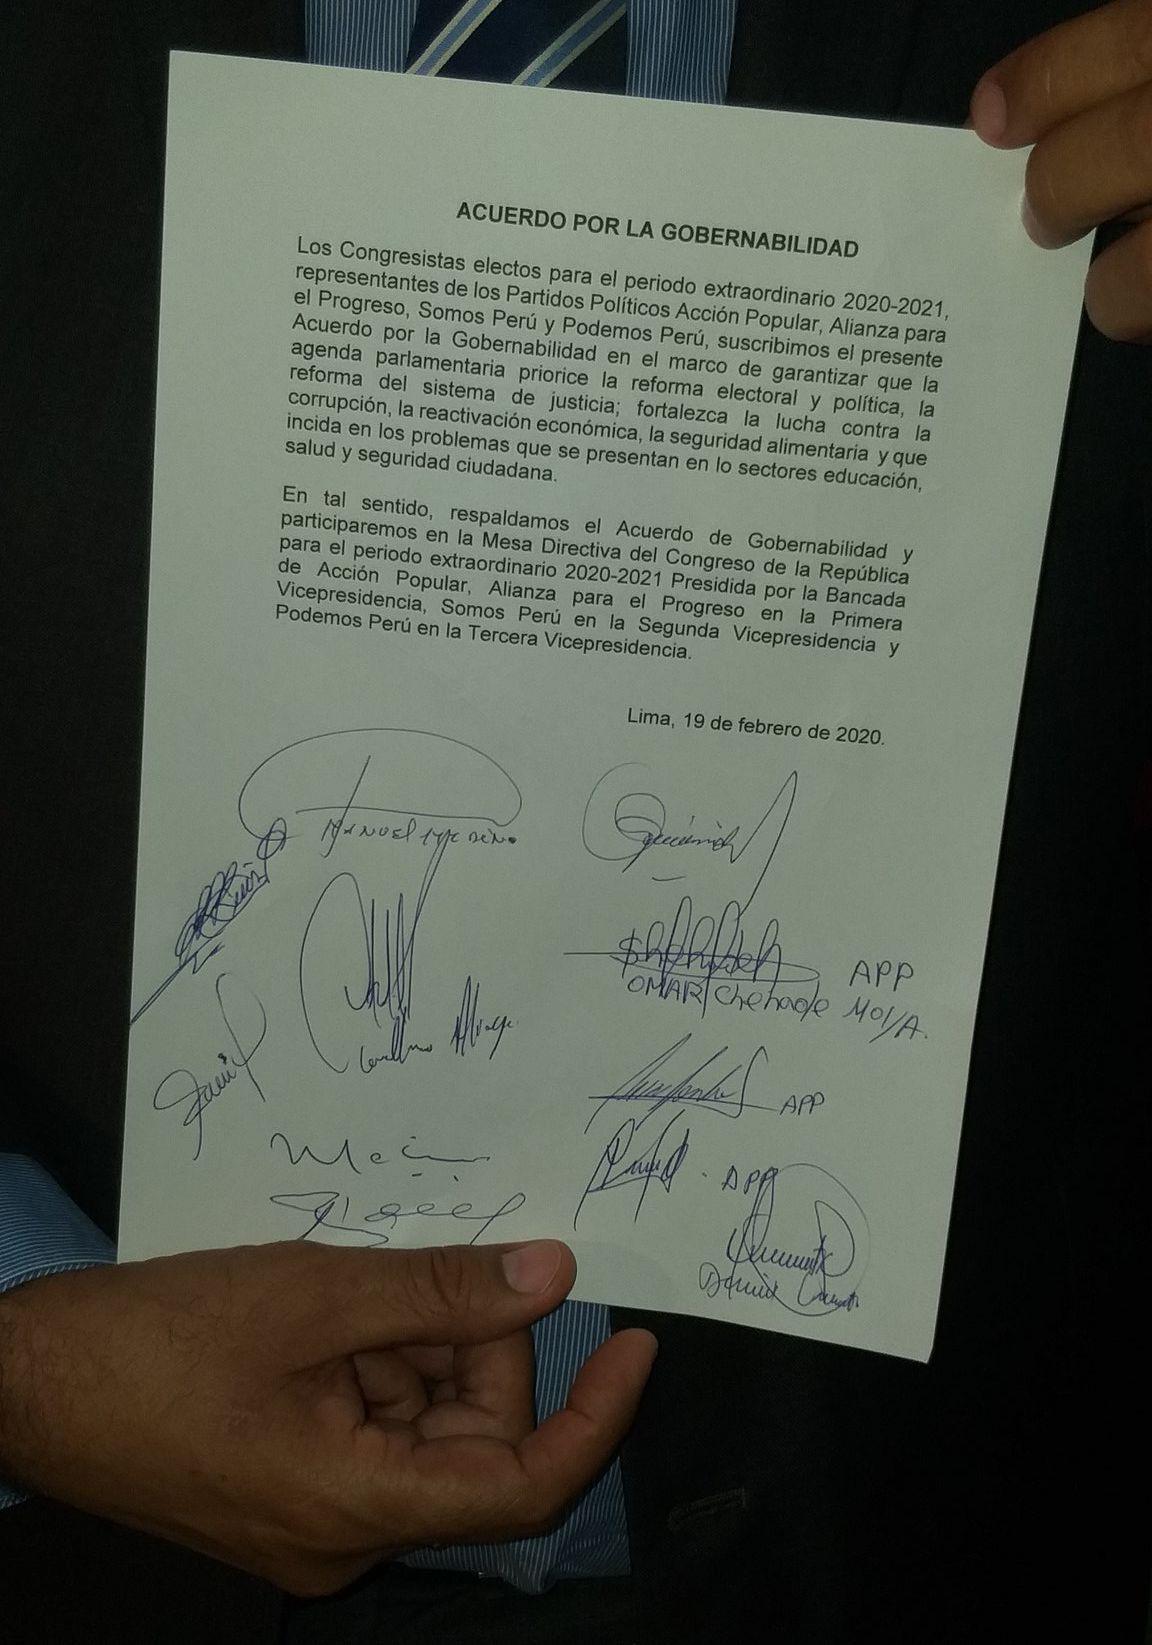 ACUERDO POR LA GOBERNABILIDAD
Los Congresistas electos para el periodo extraordinario 2020-2021,
representantes de los Partidos Políticos Acción Popular, Alianza para
el Progreso, Somos Perú y Podemos Perú, suscribimos el presente
Acuerdo por la Gobernabilidad en el marco de garantizar que la
agenda parlamentaria priorice la reforma electoral y política, la
reforma del sistema de justicia; fortalezca la lucha contra la
corrupción, la reactivación económica, la seguridad alimentaria y que
incida en los problemas que se presentan en lo sectores educación,
salud y seguridad ciudadana.
En tal sentido, respaldamos el Acuerdo de Gobernabilidad y
participaremos en la Mesa Directiva del Congreso de la República
para el periodo extraordinario 2020-2021 Presidida por la Bancada
de Acción Popular, Alianza para el Progreso en la Primera
Vicepresidencia, Somos Perú en la Segunda Vicepresidencia y
Podemos Perú en la Tercera Vicepresidencia.
Lima, 19 de febrero de 2020.
MANUEL MERINO
APP
OMAR Chehade MOYA.
APP
APP